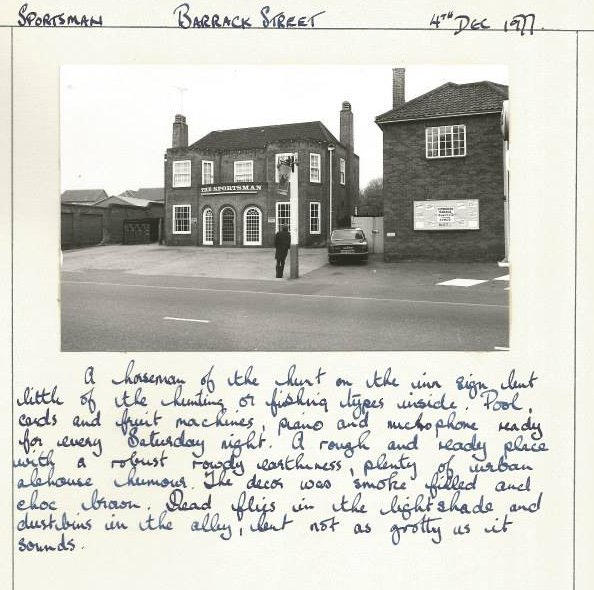 SPORTSMAN BARRACK STREET 4TH DEC 1977.
THE SPORTSMAN
A horseman of the hunt on the inn sign but
little of the hunting or fishing types inside. Pool,
cards and fruit machines, piano and microphone ready
for every Saturday night. A rough and ready place
with a robust rowdy earthiness, plenty of urban
alehouse humour. The decor was smoke filled and
choc brown. Dead flies in the lightshade and
dustbins in the alley, but not as grotty as it
sounds.